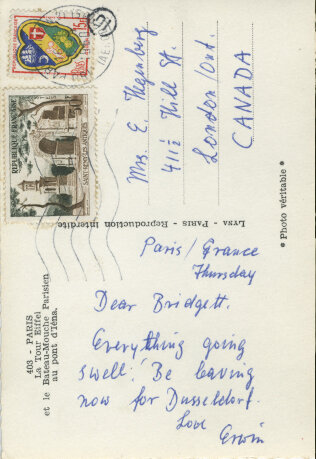 Mrs. E. Hegenberg
411½ Hill St.
London/Ont.
CANADA
REPUBLIQUE FRANÇAISE
Lyna - Paris - Reproduction interdite
* Photo véritable *
403 - PARIS
La Tour Eiffel
et le Bateau-Mouche Parisien
au pont d'Iéna.
Paris/France
Thursday
Dear Bridgett.
Everything going
swell! Be leaving
now for Dusseldorf.
Love
Erwin